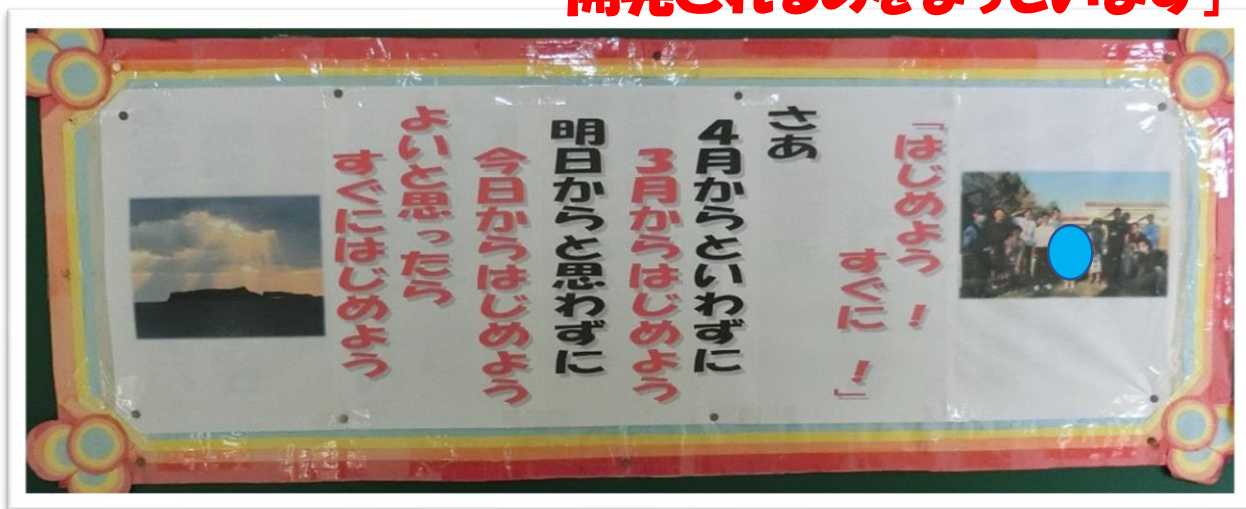 開発されるのをまっています」
「はじめよう！
すぐに！」
さあ
4月からといわずに
3月からはじめよう
明日からと思わずに
今日からはじめよう
よいと思ったら
すぐにはじめよう